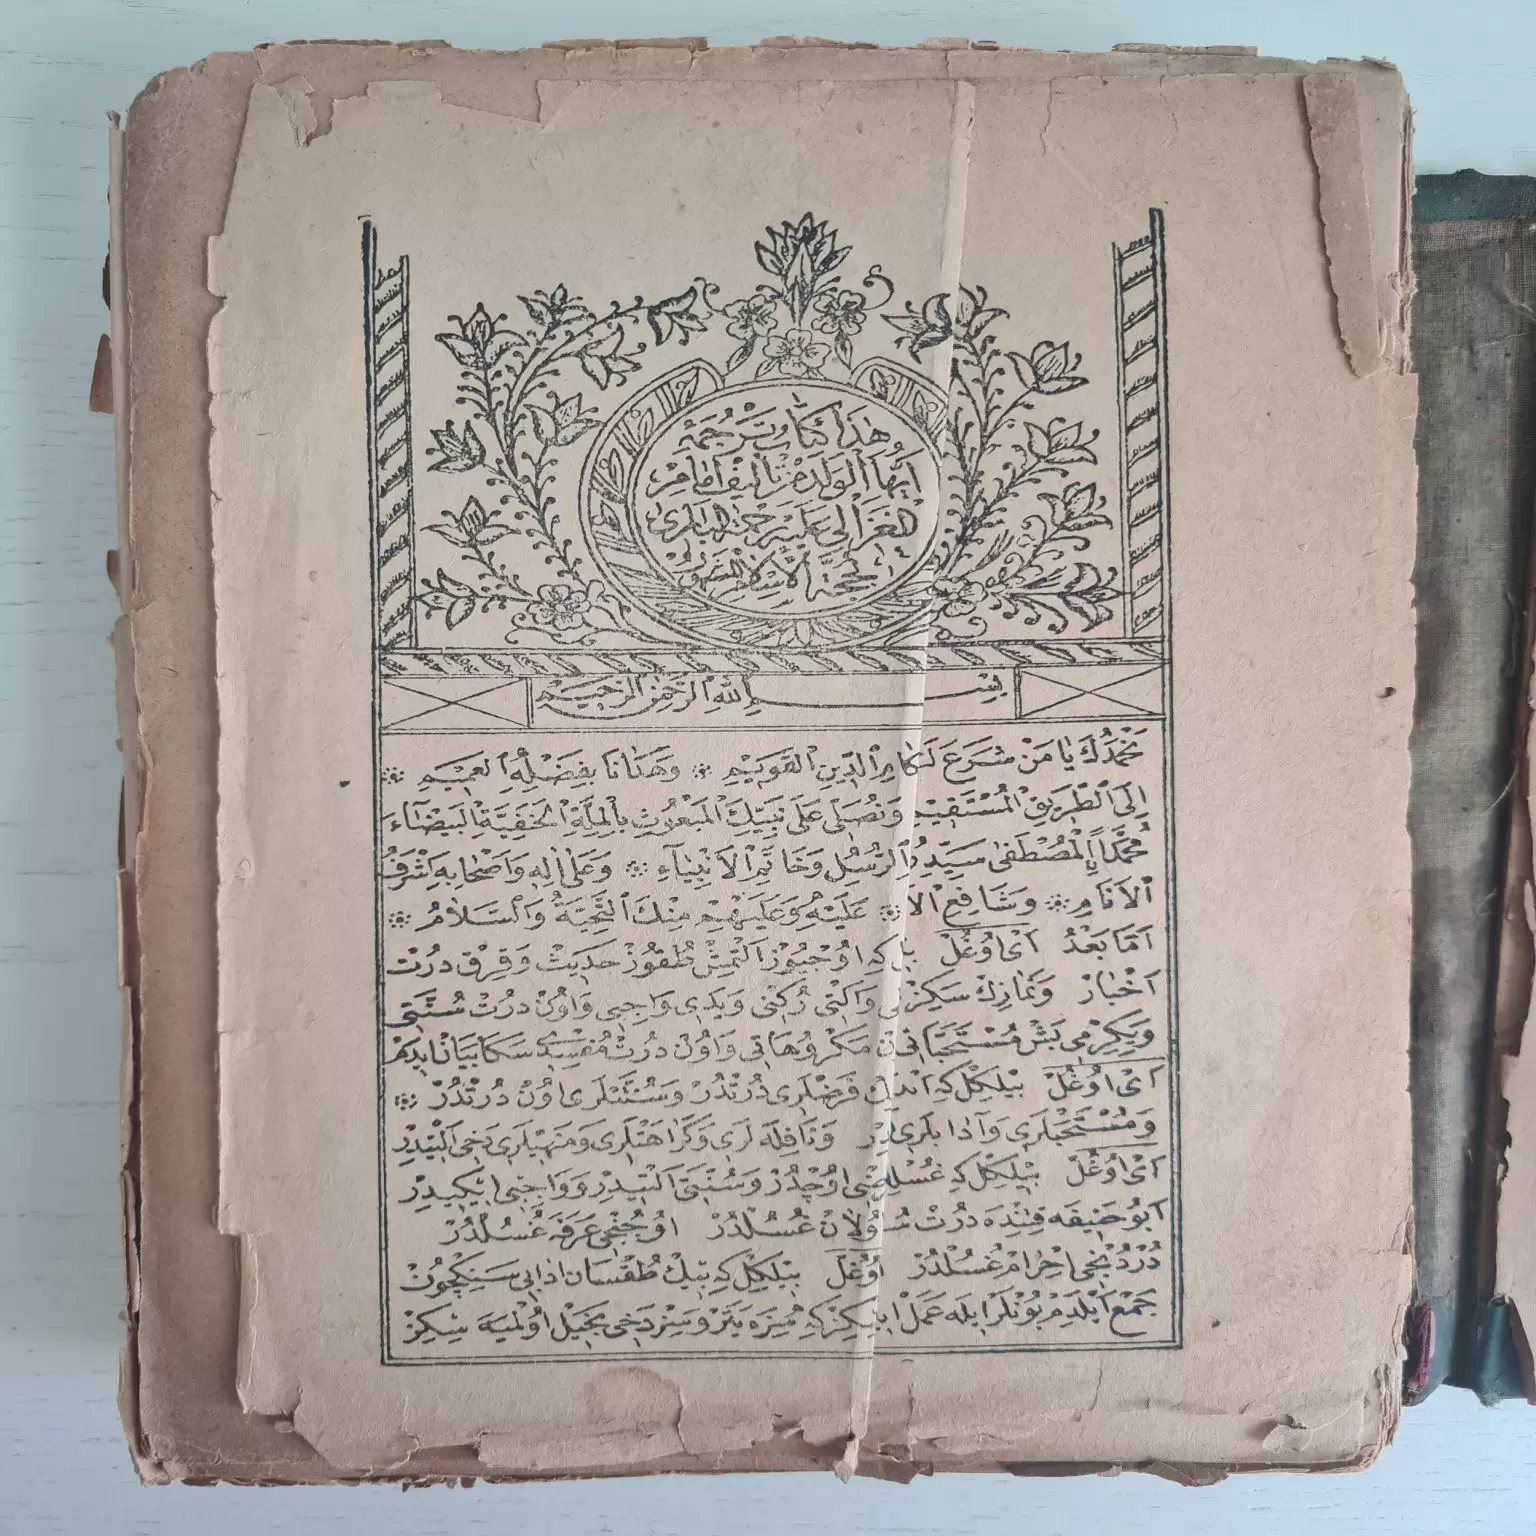 هٰذَا كِتَابُ تَرْجُمَهِٔ
اَيُّهَا الْوَلَدْ مِنْ تَأْلِيفِ اِمَامِ
الْغَزَالِى عَلَيْهِ رَحْمَةُ الْبَارِىْ
بِحُجَّةِ الْاِسْلَامِ الْمَشْهُورُ
بِسْمِ اللّٰهِ الرَّحْمٰنِ الرَّحِيمِ
نَحْمَدُكَ يَا مَنْ شَرَعَ لَنَا الدِّينِ الْقَوِيمِ ۞ وَهَدٰانَا بِفَضْلِهِ الْعَمِيمِ ۞
اِلَى الطَّرِيقِ الْمُسْتَقِيمِ وَنُصَلِّى عَلَى نَبِيِّكَ الْمَبْعُوثِ بِالْمِلَّةِ الْحَنَفِيَّةِ الْبَيْضَآءَ
مُحَمَّدٍ الْمُصْطَفٰى سَيِّدِ الرُّسُلِ وَخَاتَمِ الْاَنْبِيَآءِ ۞ وَعَلٰى اٰلِهِ وَاَصْحَابِهِ اَشْرَفُ
الْاَنَامِ ۞ وَشَافِعِ ۞ عَلَيْهِ وَعَلَيْهِمْ مِنْكَ التَّحِيَّةُ وَالسَّلَامُ ۞
اَمَّا بَعْدُ اَىْ اوُغُلْ بِل كِه اوُجْيُوزْ اَلْتْمِشْ طُقُوزْ حَدِيثْ وَقِرْقْ دُرْتْ
اَخْبَارْ وَنَمَازِكْ سَكِزْ وَاَلْتِى رُكْنِى وَيَدِى وَاجِبِى وَاوُنْ دُرْتْ سُنَّتِى
وَيِكِرْمِى بَشْ مُسْتَحَبَّاتِى مَكْرُوهَاتِى وَاوُنْ دُرْتْ مُفْسِدِى سَكَا بَيَانْ ايدَهْ
اَىْ اوُغُلْ بِيْلكِلْ كِه اَبْدَسْتِكْ فَرْضْلَرِى دُرْتْدُرْ وَسُنَّتْلَرِى اوُنْ دُرْتْدُرْ ۞
وَمُسْتَحَبْلَرِى وَآدَابْلَرِى وَنَافِلَهلَرِى وَكَرَاهَتْلَرِى وَمَنْهِيلَرِى دَخِى اَلْتِيدِرْ
اَىْ اوُغُلْ بِيْلكِلْ كِه غُسْلِكْ فَرْضِى اوُچْدُرْ وَسُنَّتِى اَلْتِيدِرْ وَوَاجِبِى اِيكِيدِرْ
اَبوُ حَنِيفَه قَتِنْدَه دُرْتْ غُسُلْدُرْ اوُچُنْجِى عَرَفَه غُسُلْدُرْ
دُرْدُنْجِى اِحْرَامْ غُسُلْدُرْ اوُغُلْ بِيْلكِلْ كِه بِيْكْ طُقْسَانْ اَدَابِى سَنِكْچُونْ
جَمْعْ اَيْلَدِمْ بوُنْلَرْ اِيلَه عَمَلْ سِزَه يَتَرْ وَسِزْ دَخِى بَخِيلْ اوُلْمَيَه سِكِزْ